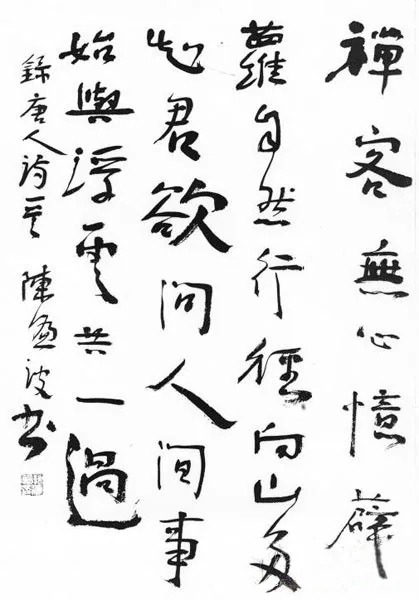 禪客無心憶薜
蘿自然行徑向山多
知君欲問人間事
始與浮雲共一過
錄唐人詩 陳 波書